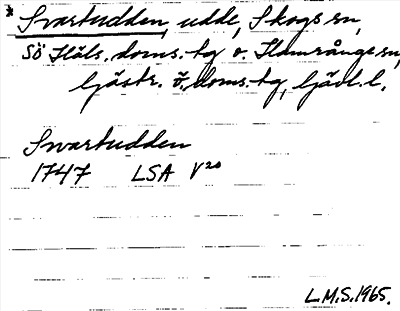 * Svartudden, udde, Skogs sn,
Sö Häls. doms. tg o. Hamrånge sn,
Gästr. ö. doms. tg, Gävl. l.
Svartudden
1747 LSA V20
L.M.S. 1965.